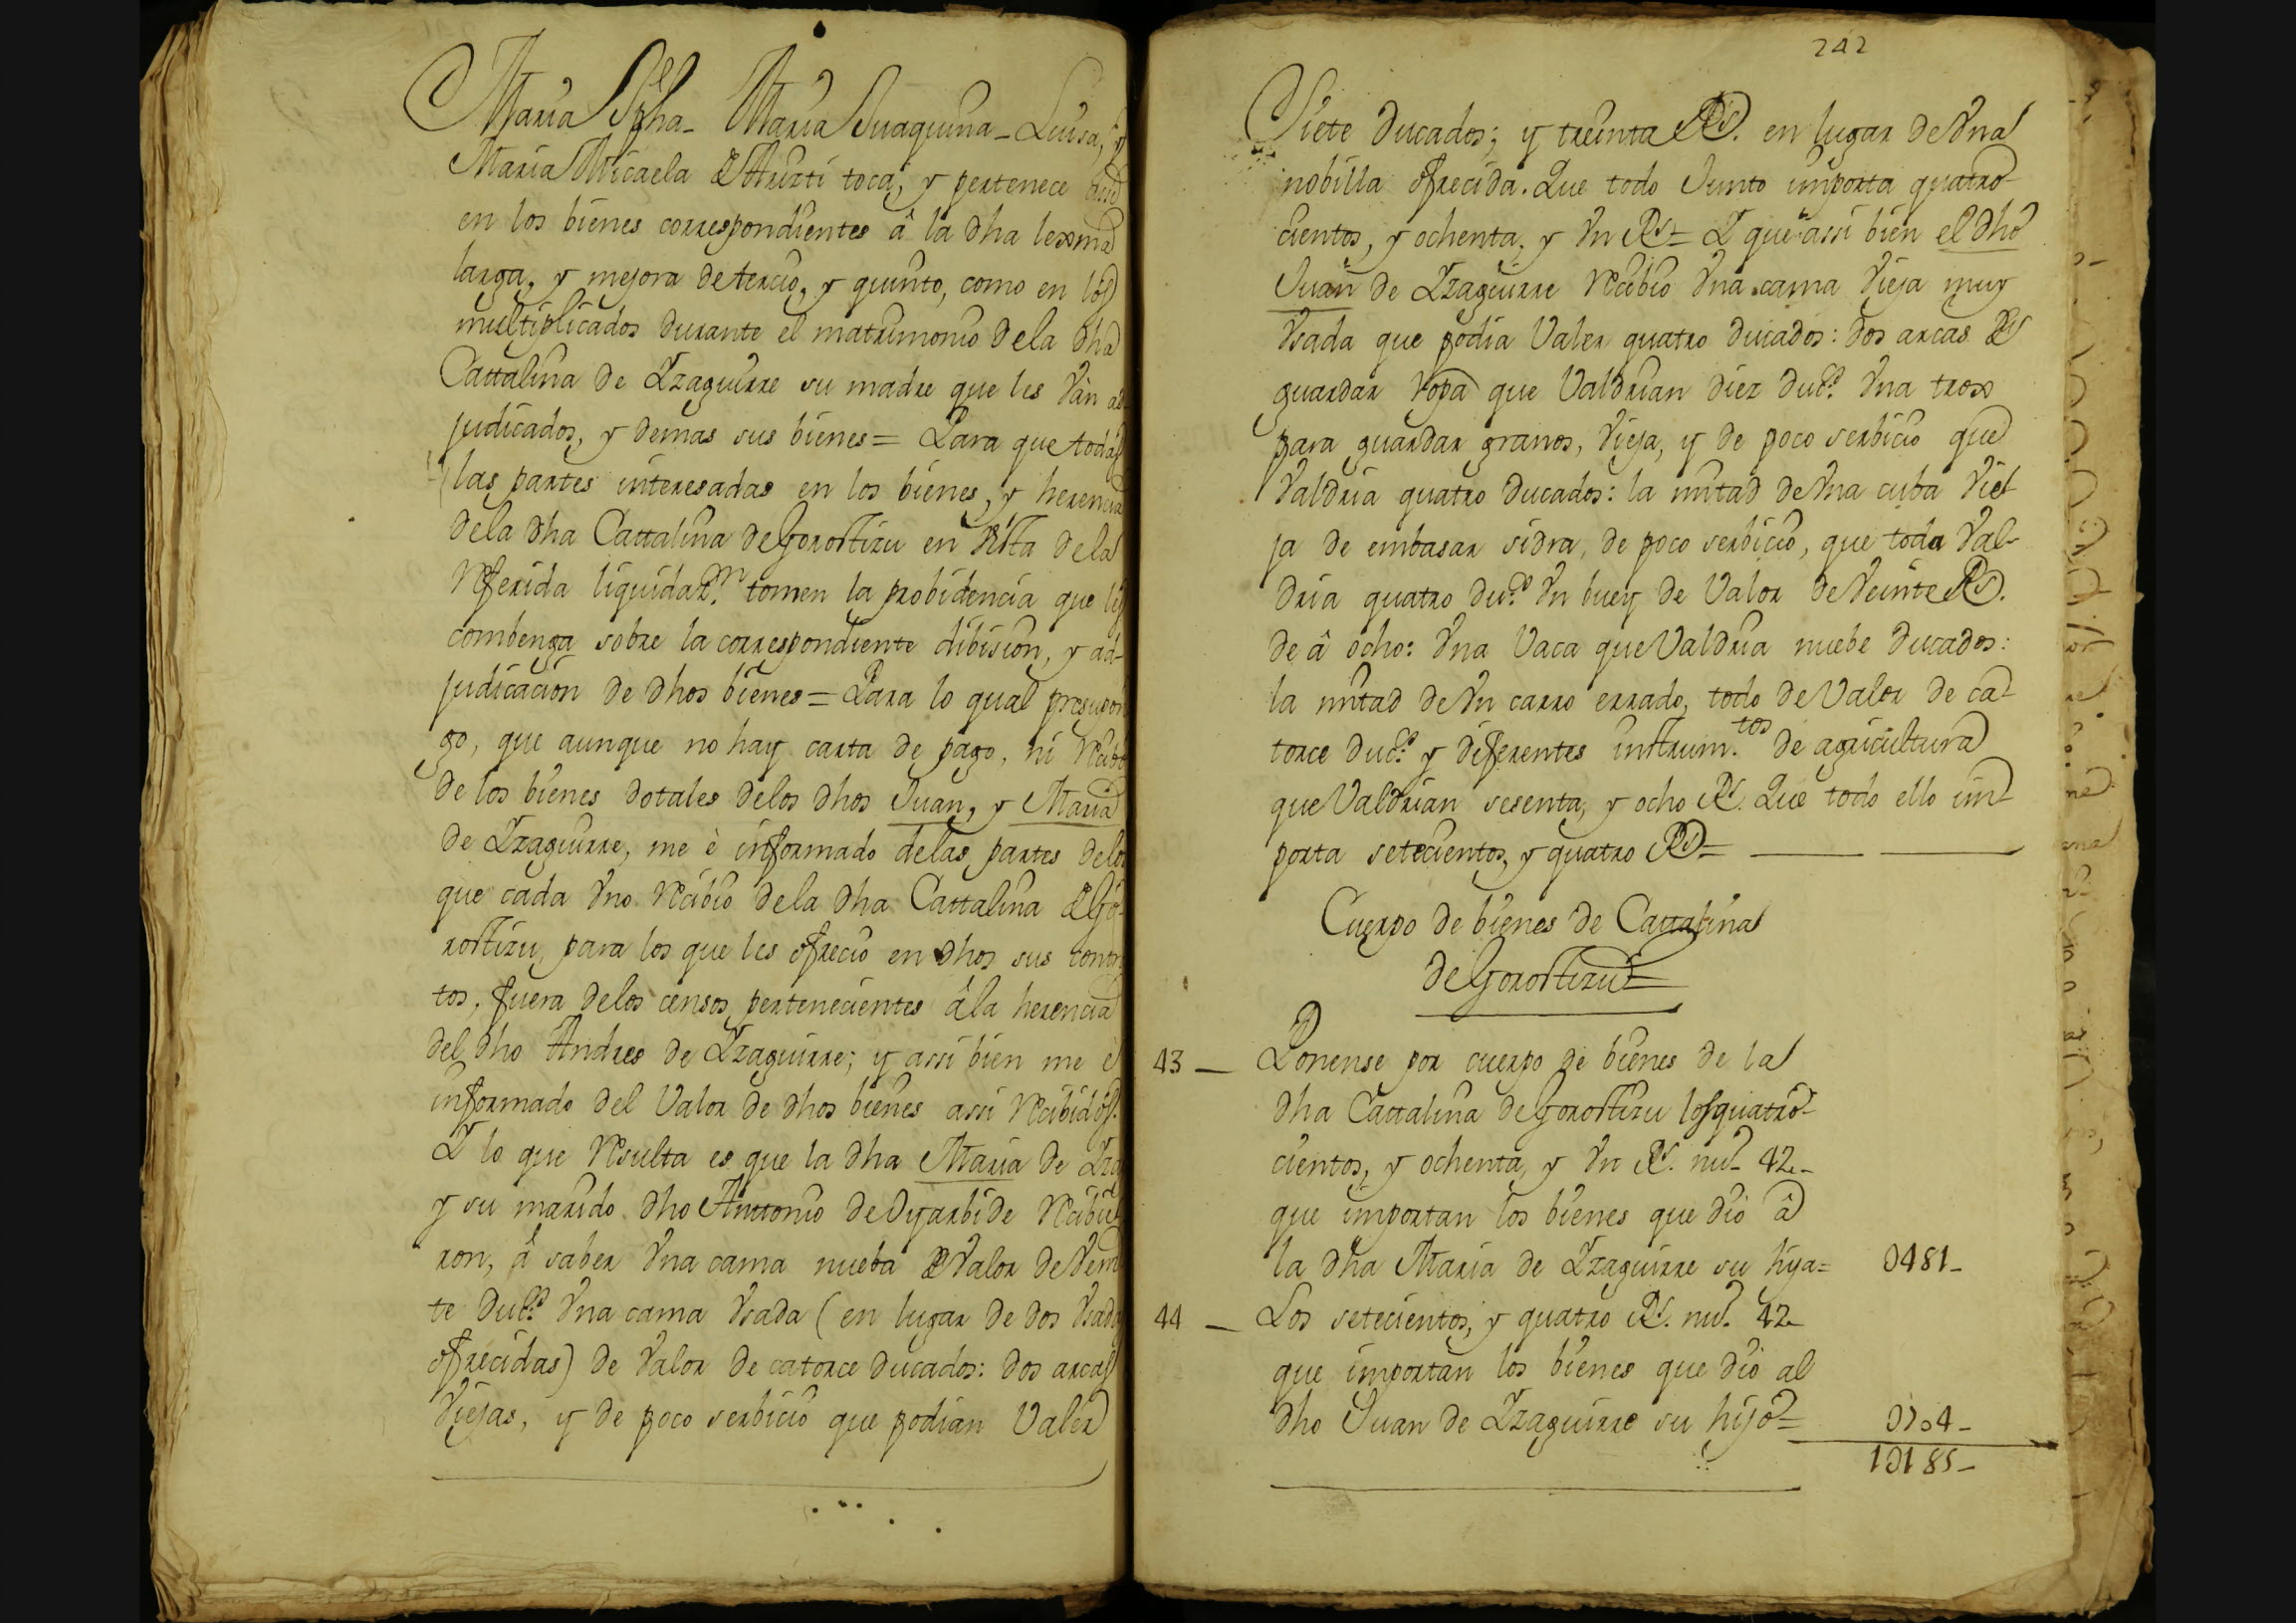 Maria Jpha- Maria Juaquina- Luisa, y
Maria Micaela de Aturti toca, y pertenece
en los bienes correspondientes â la dha lexma
larga, y mejora de tercio, y quinto, como en los
multiplicados durante el matrimonio dela dha
Cattalina de Yzaguirre su madre que les vàn ad-
judicados, y demas sus bienes= Para que todas
las partes interesadas en los bienes, y herencia
dela dha Cattalina de Gorostizu en vista dela
referida liquidaz.on tomen la probidencia que les
combenga sobre la correspondiente dibision, y ad-
judicacion de dhos bienes= Para lo qual presupon
go, que aunque no hay carta de pago, ni recibo
de los bienes dotales delos dhos Juan, y Maria
de Yzaguirre, me è informado delas partes delos
que cada vno recibio dela dha Cattalina de Go-
rostizu, para los que les ofrecio en dhos sus contra
tos, fuera delos censos pertenecientes â la herencia
del dho Andres de Yzaguirre; y assi bien me è
informado del valor de dhos bienes assi recibidos.
Y lo que resulta es que la dha Maria de Yza
y su marido dho Antonio de Oyarbide recibie
ron, â saber vna cama nueba de valor de vein
te duc.s vna cama vsada (en lugar de dos vsadas
ofrecidas) de valor de catorce ducados: dos arcas
viejas, y de poco serbicio que podian valer
242
Siete ducados; y treinta Rs. en lugar de vna
nobilla ofrecida. Que todo junto importa quatro-
cientos, y ochenta, y vn Rs= Y que assi bien el dho
Juan de Yzaguirre recibio vna cama vieja muy
vsada que podia valer quatro ducados: dos arcas de
guardar ropa que valdrian diez duc.s vna trox
para guardar granos, vieja, y de poco serbicio que
valdria quatro ducados: la mitad de vna cuba vie-
ja de embasar sidra, de poco serbicio, que toda val-
dria quatro du.s vn buey de valor de veinte Rs.
de â ocho: vna vaca que valdria nuebe ducados:
la mitad de vn carro errado, todo de valor de ca-
torce duc.s y diferentes instrum.tos de agricultura
que valdrian sesenta, y ocho Rs. Que todo ello im-
porta setecientos, y quatro Rs=
Cuerpo de bienes de Cattalina
de Gorostizu=
43 — Ponense por cuerpo de bienes de la
dha Cattalina de Gorostizu los quatro-
cientos, y ochenta, y vn Rs. nu.o 42.-
que importan los bienes que diò â
la dha Maria de Yzaguirre su hija= 0481-
44 — Los setecientos, y quatro Rs. nu.o 42-
que importan los bienes que diò al
dho Juan de Yzaguirre su hijo= 0704-
10185-